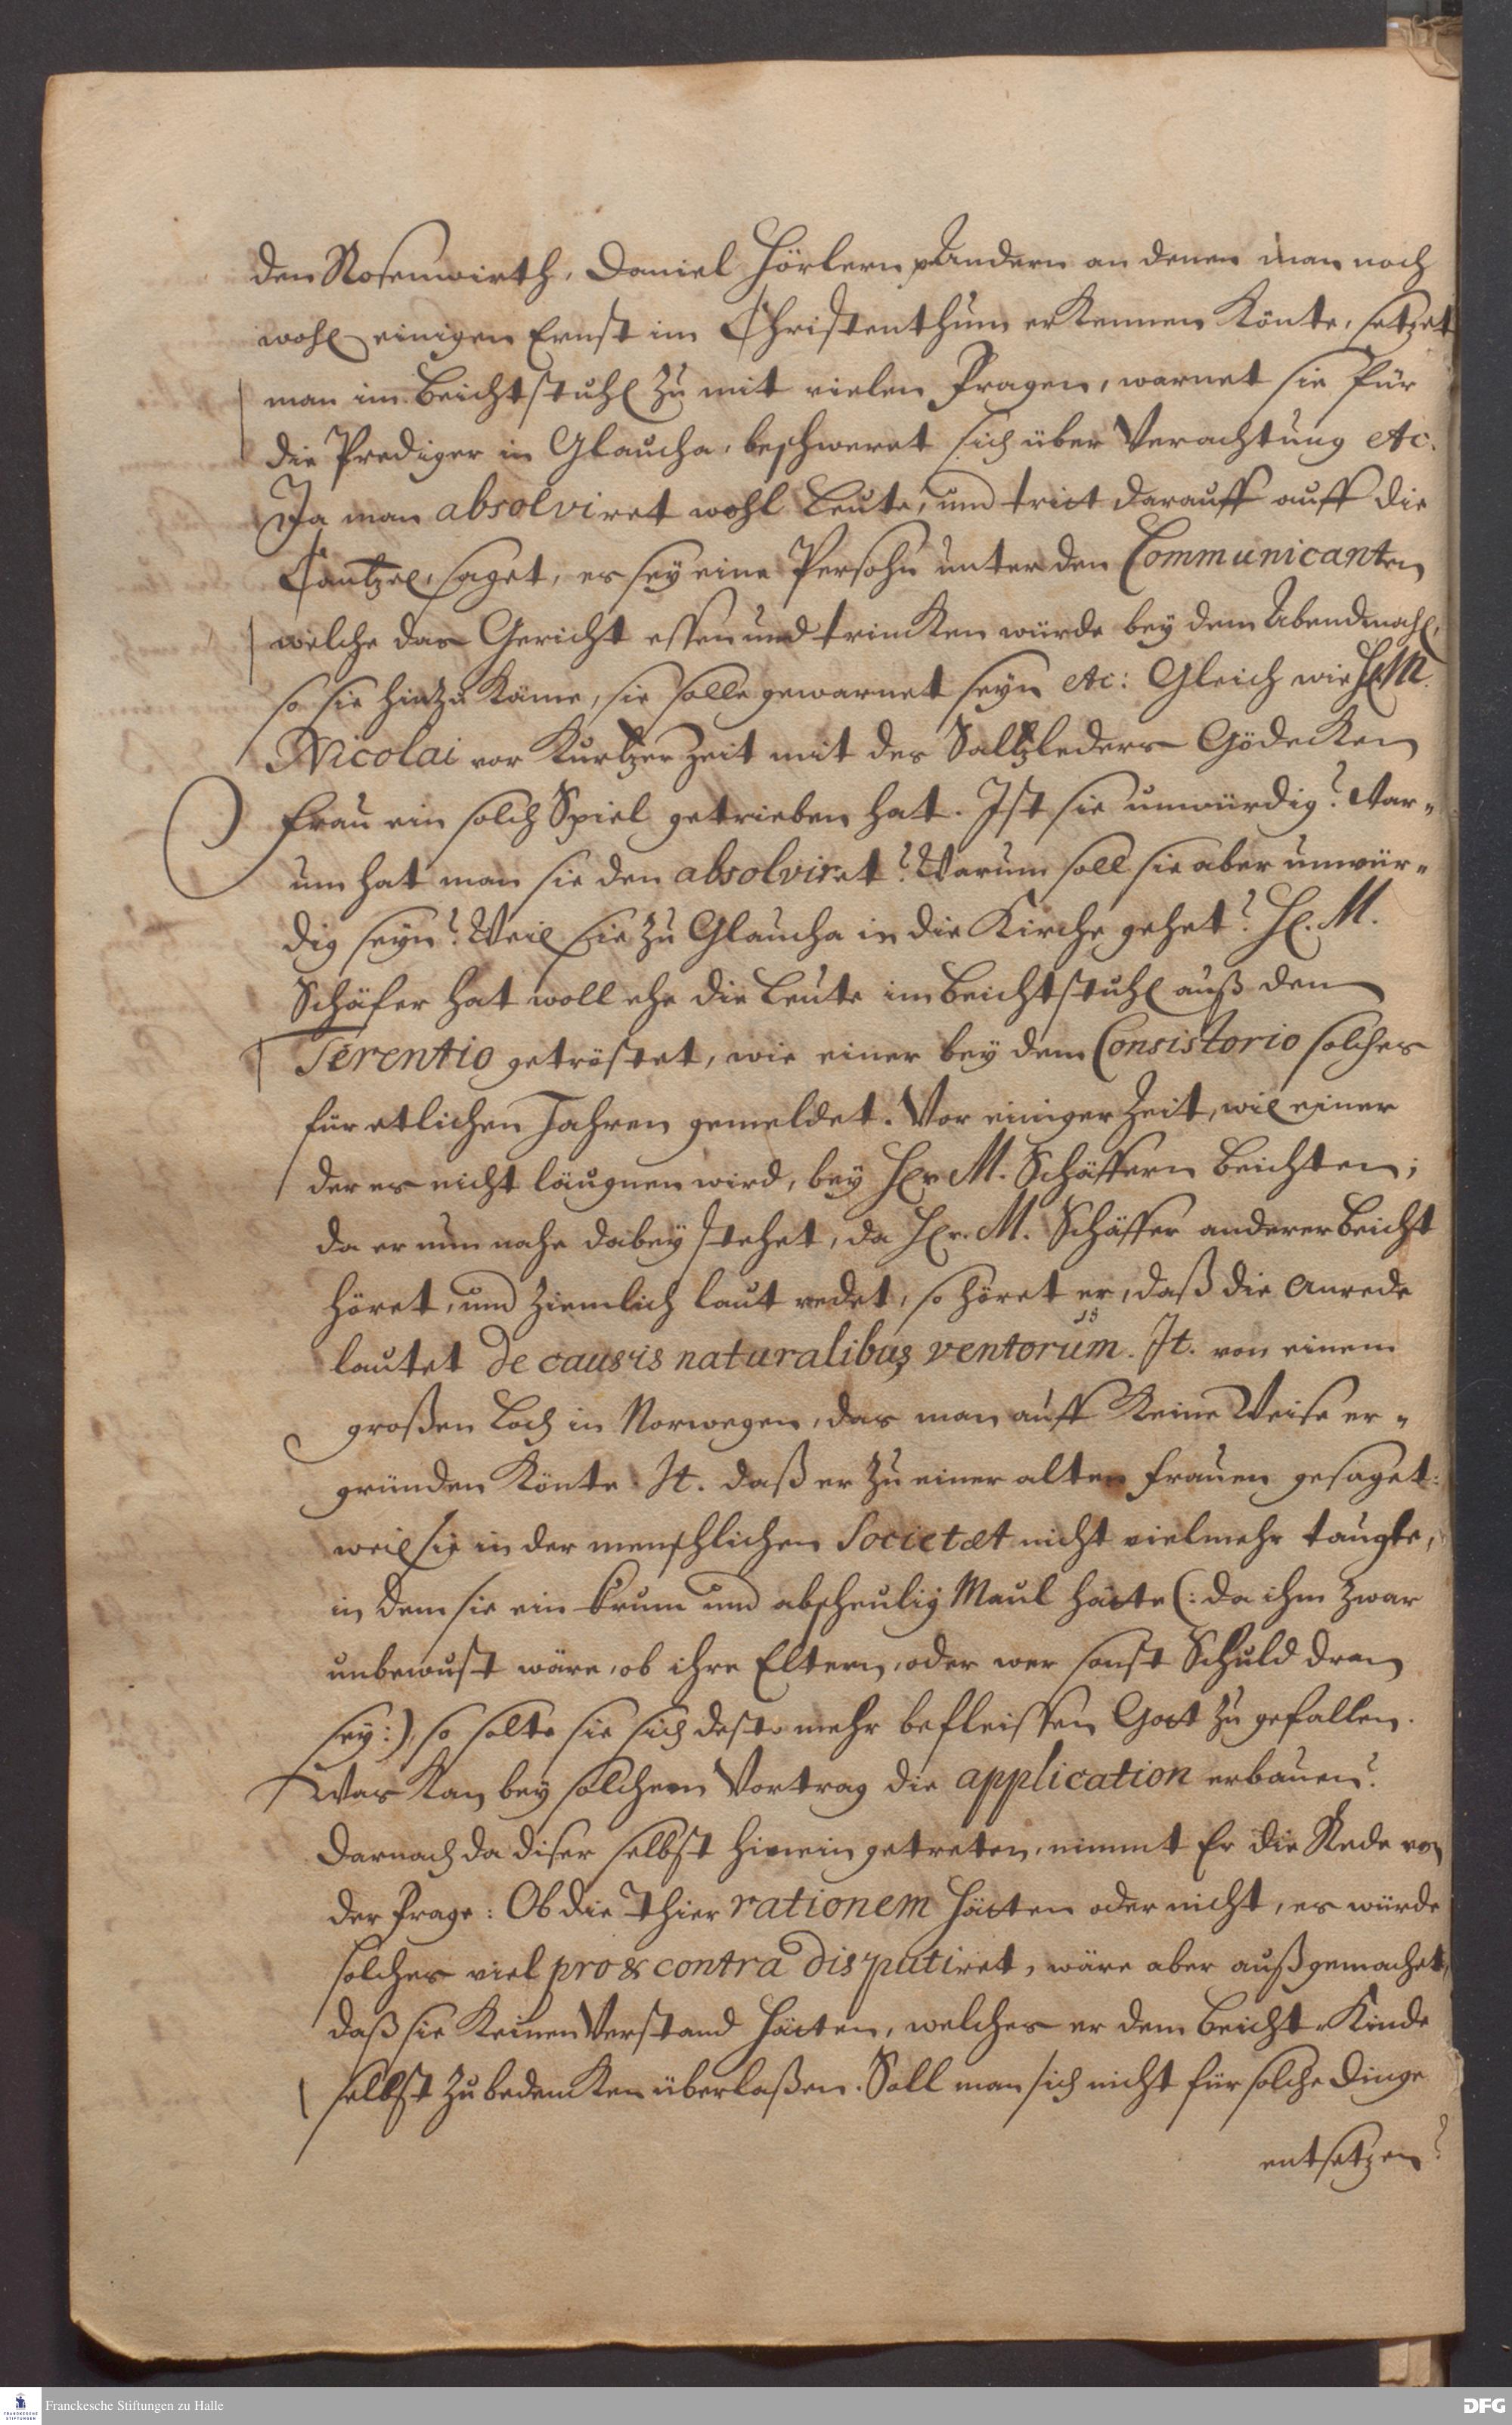 den Rosenwirth, Daniel Hörlern, Andern an denen man noch
wohl einigen Ernst im Christenthum erkennen könte, setzet
man im Beichtstuhl zu mit vielen Fragen, warnet sie für
die Prediger in Glaucha, beschweret sich über Verachtung etc.
Ja man absolviret wohl Leute, und trict darauff auff die
Cantzel, saget, es sey eine Persohn unter den Communicanten
welche das Gericht essen und trincken würde bey dem Abendmahl,
so sie hinzu käme, sie solle gewarnet seyn etc: Gleich wie H. M.
Nicolai vor kurtzer Zeit mit des Saltzleders Gödecken
Frau ein solch Spiel getrieben hat. Ist sie unwürdig? War-
um hat man sie den absolviret? Warum soll sie aber unwür-
dig seyn? Weil sie zu Glaucha in die Kirche gehet? H. M.
Schäfer hat woll ehe die Leute im Beichtstuhl auß dem
Terentio getröstet, wie einer bey dem Consistorio solches
für etlichen Jahren gemeldet. Vor einiger Zeit, wil einer
der es nicht läugnen wird, bey Hr. M. Schäffern beichten;
da er nun nahe dabey stehet, da Hr. M. Schäffer anderer Beicht
höret, und ziemlich laut redet, so höret er, daß die Anrede
lautet de causis naturalibus ventorum. It. von einem
großen Loch in Norwegen, das man auff keine Weise er-
gründen könte. It. daß er zu einer alten Frauen gesaget:
weil sie in der menschlichen Societæt nicht vielmehr taugte,
in dem sie ein krum und abscheulig Maul hätte (: da ihm zwar
unbewust wäre, ob ihre Eltern, oder wer sonst Schuld dran
sey:), so solte sie sich desto mehr befleissen Gott zu gefallen.
Was kan bey solchem Vortrag die application erbauen?
Darnach da diser selbst hinein getreten, nimmt Er die Rede von
der Frage: Ob die Thier rationem hätten oder nicht, es würde
solches viel pro & contra disputiret, wäre aber außgemachet,
daß sie keinen Verstand hätten, welches er dem Beicht-Kinde
selbst zu bedencken überlaßen. Soll man sich nicht für solche Dinge
entsetzen?
Franckesche Stiftungen zu Halle
DFG